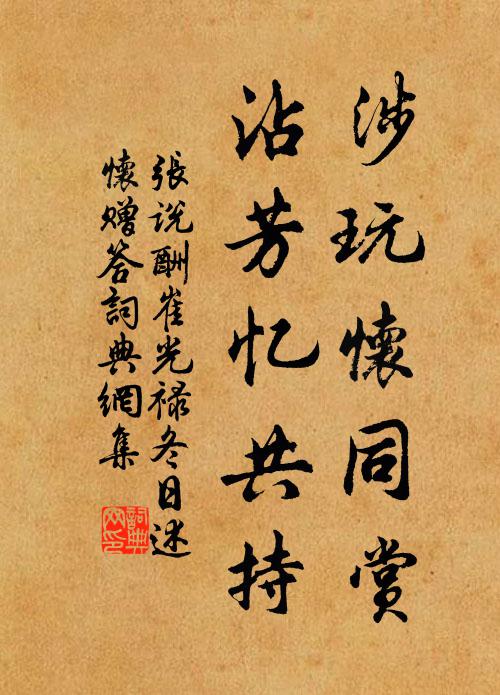 涉玩懷同赏
沾芳忆共持
張说酬崔光禄冬日述
懷赠答詞典網集
詞典网印